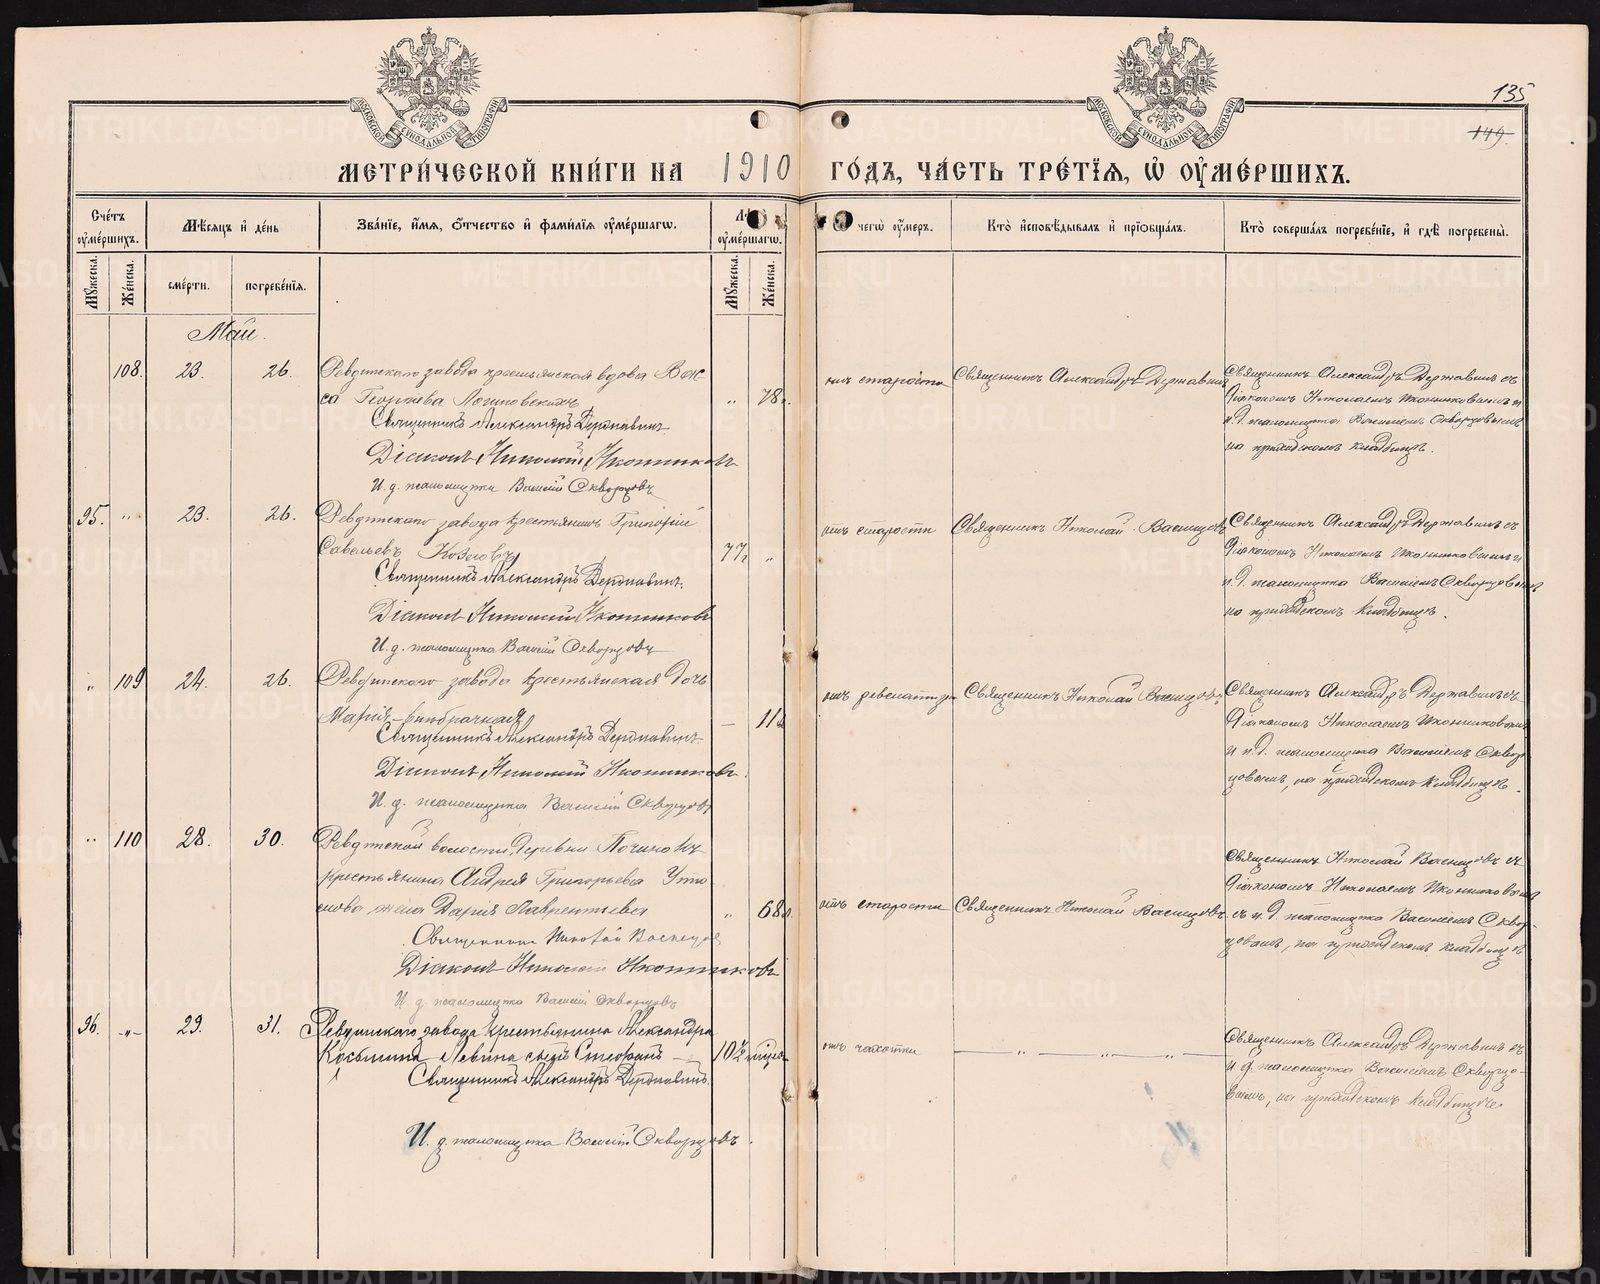 МОСКОВСКОЙ СѴНОДАЛЬНОЙ ТИПОГРАФІИ
МОСКОВСКОЙ СѴНОДАЛЬНОЙ ТИПОГРАФІИ
135
149
МЕТРИ́ЧЕСКОЙ КНИ́ГИ НА 1910 ГО́ДЪ, ЧА́СТЬ ТРЕ́ТІЯ, Ѡ҆ ОУ҆МЕ́РШИХЪ.
Сче́тъ оумершихъ.
Мѣсяцъ и день
Званіе, имя, отчество и фамилія оумершагѡ.
оумершагѡ.
чегѡ оумеръ.
Кто исповѣдывалъ и пріобщалъ.
Кто совершалъ погребеніе, и гдѣ погребены.
Мужеска.
Женска.
смерти.
погребенія.
Мужеска.
Женска.
Май.
108. 23. 26. Ревдинскаго завода крестьянская вдова Вас
са Георгіева Логиновскихъ „ 78
Священникъ Александръ Державинъ
Діаконъ Николай Иконников
И. д. псаломщика Василій Скворцовъ
отъ старости
Священникъ Александръ Державинъ
Священникъ Александръ Державинъ съ
діакономъ Николаемъ Иконниковымъ и
и.д. псаломщика Василіемъ Скворцовымъ
на приходскомъ кладбищѣ.
95. „ 23. 26. Ревдинскаго завода крестьянинъ Григорій
Савельевъ Козловъ 77 „
Священникъ Александръ Державинъ.
Діаконъ Николай Иконниковъ
И. д. псаломщика Василій Скворцовъ
отъ старости
Священникъ Николай Васнецовъ
Священникъ Александръ Державинъ съ
діакономъ Николаемъ Иконниковымъ и
и.д. псаломщика Василіемъ Скворцовымъ
на приходскомъ кладбищѣ.
„ 109 24. 26. Ревдинскаго завода крестьянская дочь
Марія – внебрачная – 11
Священникъ Александръ Державинъ
Діаконъ Николай Иконниковъ.
И. д. псаломщика Василій Скворцовъ
отъ
Священникъ Николай Васнецовъ
Священникъ Александръ Державинъ съ
діакономъ Николаемъ Иконниковымъ
и и.д. псаломщика Василіемъ Сквор
цовымъ, на приходскомъ кладбищѣ.
„ 110 28. 30. Ревдинской волости, деревни Починокъ
крестьянина Андрея Григорьева
жена Дарія Лаврентьева „ 68
Священникъ Николай Васнецов
Діаконъ Николай Иконниковъ
И. д. псаломщика Василій Скворцовъ
отъ старости
Священникъ Николай Васнецовъ
Священникъ Николай Васнецовъ съ
діакономъ Николаемъ Иконниковымъ
съ и.д. псаломщика Василіемъ Сквор-
цовымъ, на приходскомъ кладбищѣ
96. „ 29. 31. Ревдинскаго завода крестьянина Александра
Козьмина Левина сынъ Стефанъ – 10½
Священникъ Александръ Державинъ.
И. д. псаломщика Василій Скворцовъ.
отъ чахотки
Священникъ Александръ Державинъ съ
и.д. псаломщика Василіемъ Скворцо-
вымъ, на приходскомъ кладбищѣ
METRIKI.GASO-URAL.RU